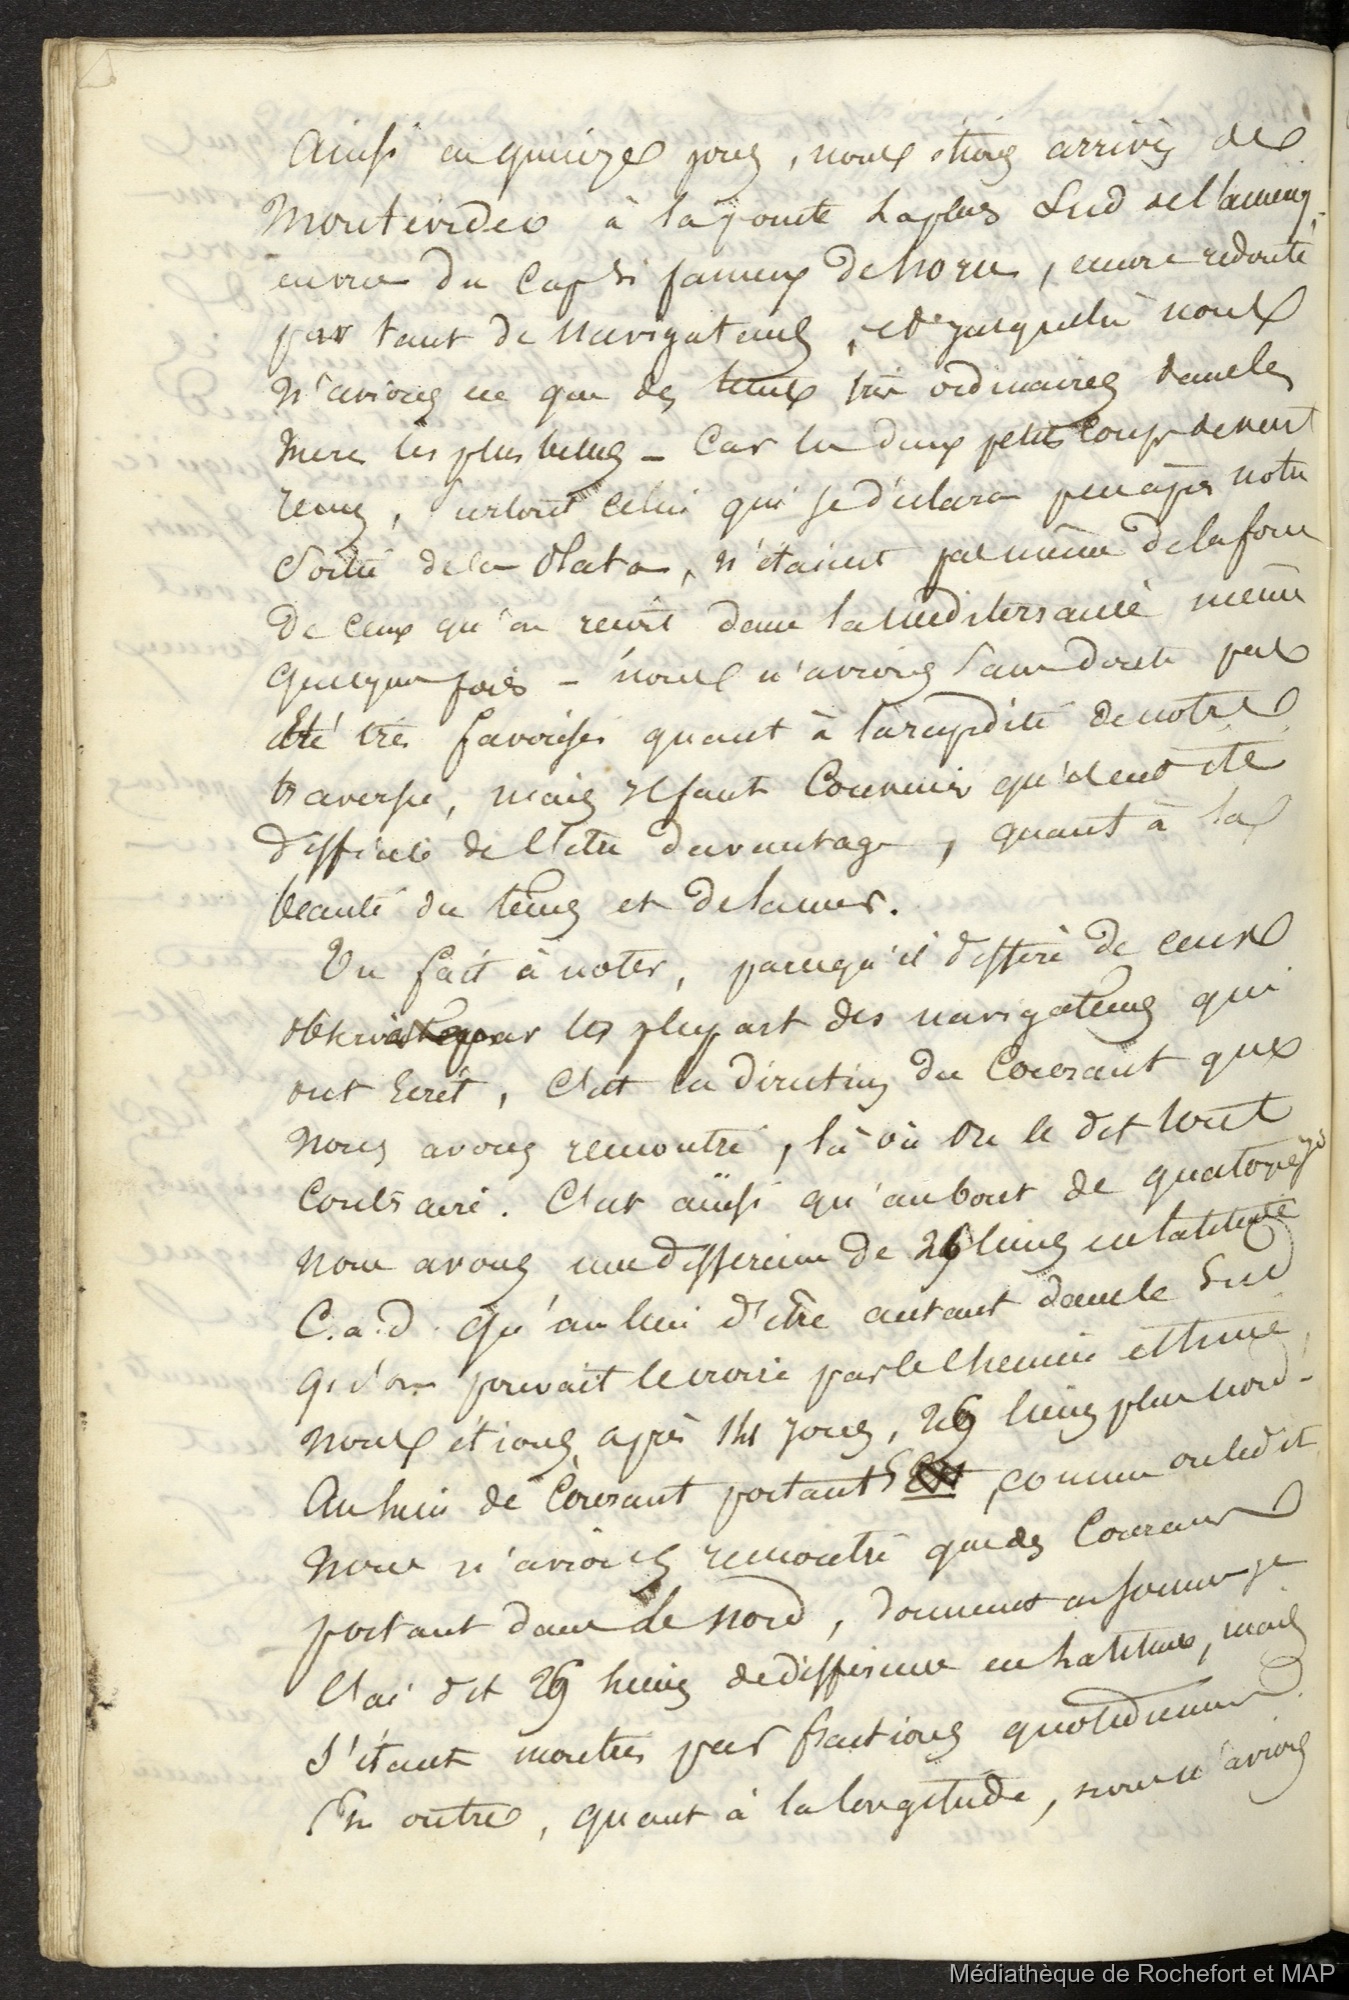 Ainsi en quinze jours, nous étions arrivés de
Montévidéo à la pointe la plus Sud de l'amériq.
en vue du Cap si fameux de horn, encore redouté
par tant de navigateurs, et jusques là nous
n'avions eu que des tems très ordinaires dans les
mers les plus belles – Car les deux petits coups de vent
reçus, surtout celui qui se déclara peu après notre
sortie de la Plata, n'étaient pas même de la force
de ceux qu'on reçoit dans la méditerranée même
quelques fois – nous n'avions sans doute pas
été très favorisés quant à la rapidité de notre
traversée, mais il faut convenir qu'il eut été
difficile de l'être davantage, quant à la
beauté du tems et de la mer.
Un fait à noter, parcequ'il diffère de ceux
observés par les plupart des navigateurs qui
ont écrit, c'est la direction du Courant que
nous avons rencontré, là où on le dit tout
contraire. C'est ainsi qu'au bout de quatorze jrs
nous avons une différence de 26 lieues en latitude
C.a.d. qu'au lieu d'être autant dans le Sud
qu'on pouvait le croire par le chemin estimé,
nous étions, après 14 jours, 26 lieues plus nord.
Au lieu de Courant portant S comme on le dit
nous n'avions rencontré que des Courans
portant dans le nord, donnant en somme je
l'ai dit 26 lieues de différence en latitude, mais
s'étant montrés par fractions quotidiennes
En outre, quant à la longitude, nous n'avions
Médiathèque de Rochefort et MAP